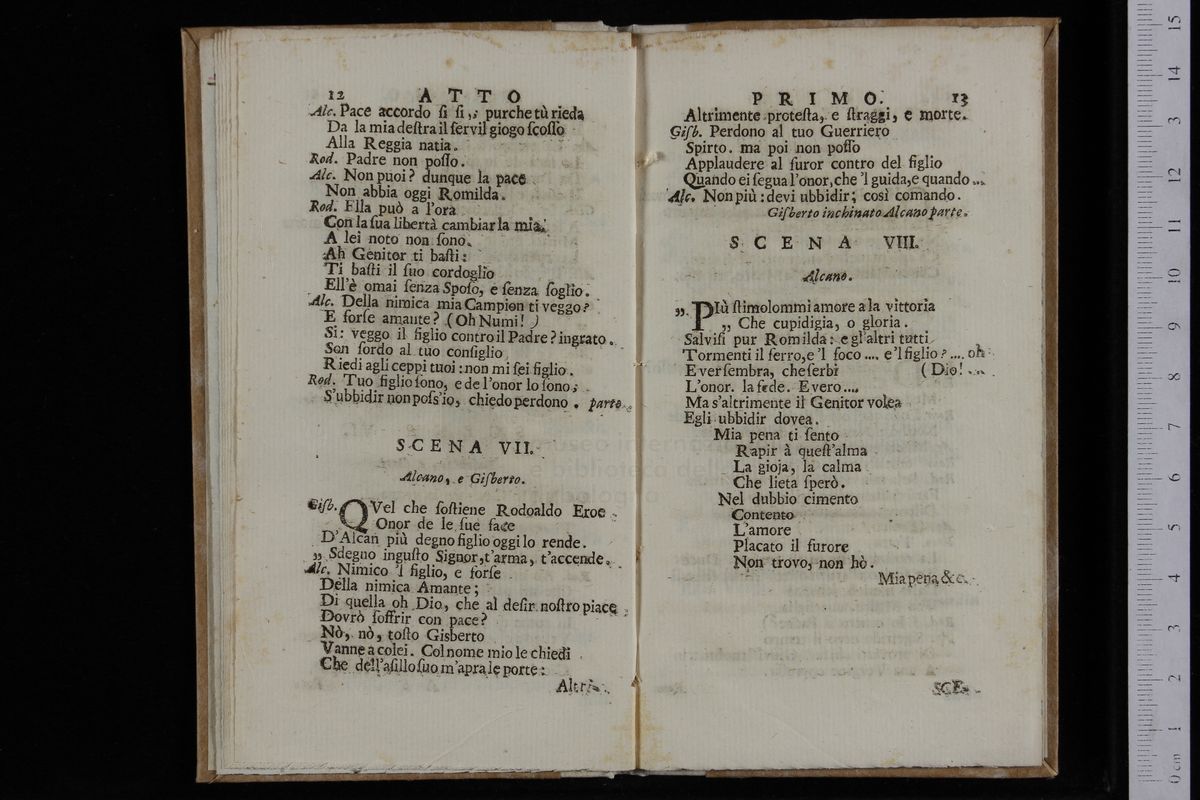 12 ATTO
Alc. Pace accordo ſi ſi,; purche tù rieda
Da la mia deſtra il ſervil giogo ſcoſſo
Alla Reggia natia.
Rod. Padre non poſſo.
Alc. Non puoi? dunque la pace
Non abbia oggi Romilda.
Rod. Ella può a l'ora
Con la ſua libertà cambiar la mia.
A lei noto non ſono.
Ah Genitor ti baſti:
Ti baſti il ſuo cordoglio
Ell'è omai ſenza Spoſo, e ſenza ſoglio.
Alc. Della nimica mia Campion ti veggo?
E forſe amante? (Oh Numi!)
Si: veggo il figlio contro il Padre? ingrato.
Son ſordo al tuo conſiglio
Riedi agli ceppi tuoi: non mi ſei figlio.
Rod. Tuo figlio ſono, e de l'onor lo ſono;
S'ubbidir non poſs'io, chiedo perdono. parte.
SCENA VII.
Alcano, e Giſberto.
Giſb. QVel che ſoſtiene Rodoaldo Eroe
Onor de le ſue face
D'Alcan più degno figlio oggi lo rende.
„ Sdegno inguſto Signor, t'arma, t'accende.
Alc. Nimico 'l figlio, e forſe
Della nimica Amante;
Di quella oh Dio, che al deſir noſtro piace
Dovrò ſoffrir con pace?
Nò, nò, toſto Gisberto
Vanne a colei. Col nome mio le chiedi
Che dell'aſillo ſuo m'apra le porte:
Altri-
PRIMO. 13
Altrimente proteſta, e ſtraggi, e morte.
Giſb. Perdono al tuo Guerriero
Spirto. ma poi non poſſo
Applaudere al furor contro del figlio
Quando ei ſegua l'onor, che 'l guida, e quando ...
Alc. Non più: devi ubbidir; così comando.
Giſberto inchinato Alcano parte.
SCENA VIII.
Alcano.
„ PIù ſtimolommi amore a la vittoria
„ Che cupidigia, o gloria.
Salviſi pur Romilda: e gl'altri tutti
Tormenti il ferro, e 'l foco .... e 'l figlio? .... oh
E ver ſembra, che ſerbi (Dio! ...
L'onor. la fede. E vero....
Ma s'altrimente il Genitor volea
Egli ubbidir dovea.
Mia pena ti ſento
Rapir à queſt'alma
La gioja, la calma
Che lieta ſperò.
Nel dubbio cimento
Contento
L'amore
Placato il furore
Non trovo, non hò.
Mia pena, &c.
SCE-